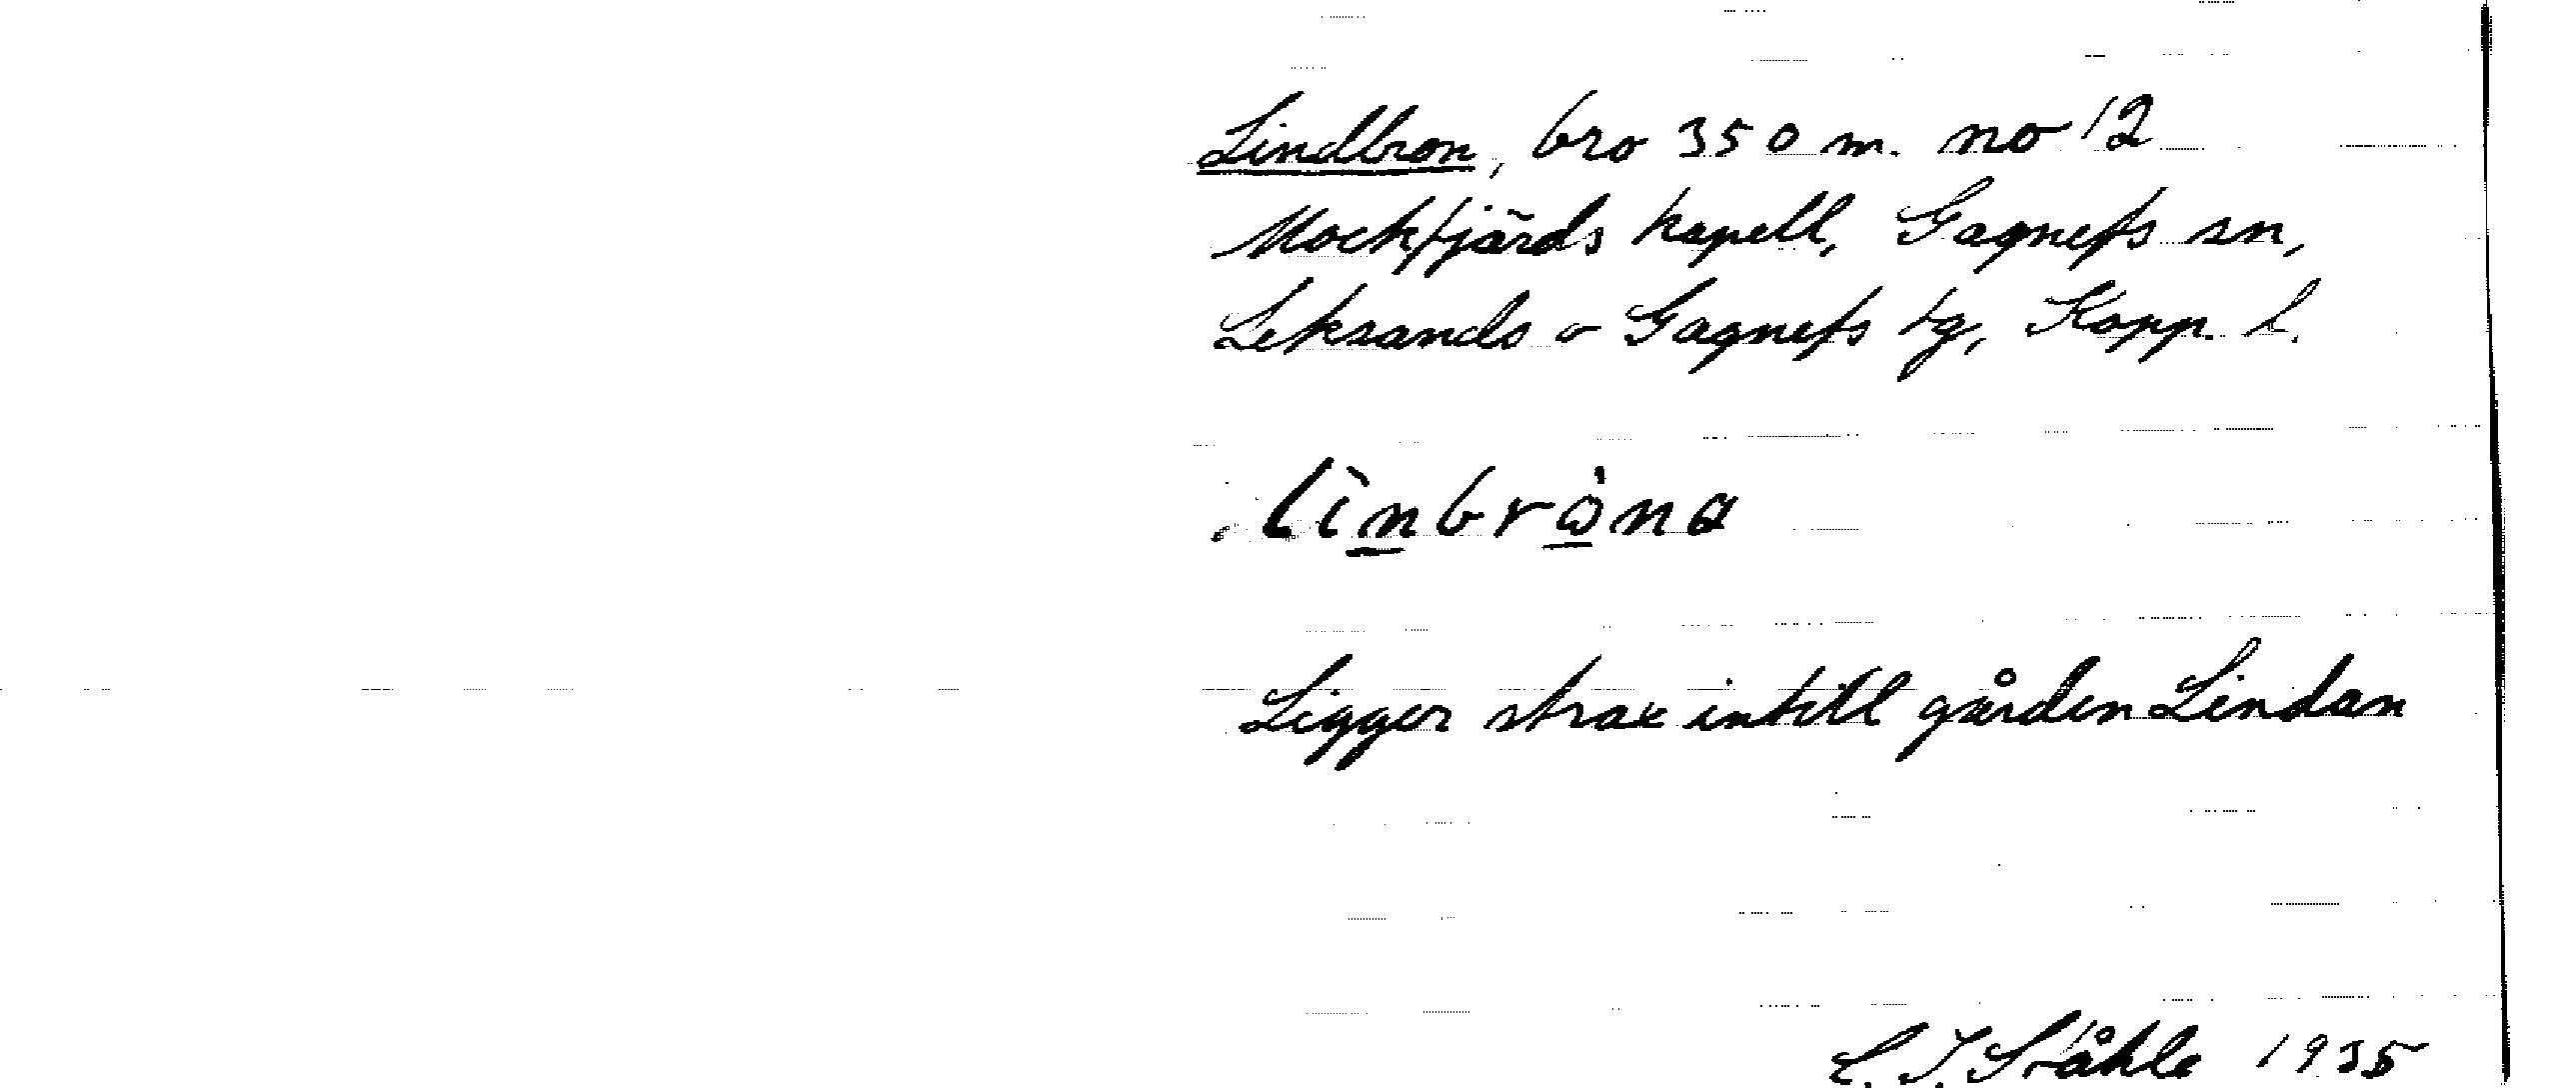 Lindbron, bro 350 m. no 12
Mockfjärds kapell, Gagnefs sn,
Leksands o Gagnefs tg, Kopp. l.
linbròna
Ligger strax intill gården Lindan
C. I. Ståhle 1935